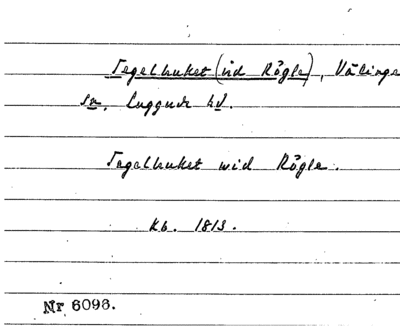 Tegelbuket (vid Rögle), Välinge
sn, Luggude hd.
Tegelbuket wid Rögle.
Kb. 1813.
Nr 6096.